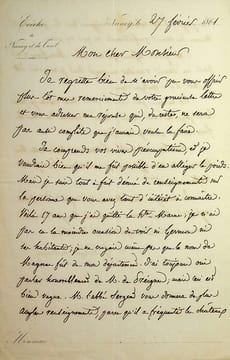 Evêché
de
Nancy et de Toul
Nancy, le 27 février 1861.
Mon cher Monsieur
Je regrette bien de n'avoir pu vous offrir
plus tôt mes remerciements de votre gracieuse lettre
et vous adresser ma réponse qui, du reste, ne sera
pas aussi complète que j'aurais voulu la faire.
Je comprends vos vives préoccupations, et je
voudrais bien qu'il me fût possible d'en alléger le poids.
Mais je suis tout à fait dénué de renseignements sur
la personne que vous avez tant d'intérêt à connaître.
Voilà 17 ans que j'ai quitté la Hte Marne; je n'ai
pas eu la moindre occasion de voir ni Germain ni
ses habitants; je ne croyais même pas que le nom de
fût de ma J'ai toujours ouï
parler honorablement de M. de mais tout est
bien vague. M. l'abbé vous donnera de plus
amples renseignements, parce qu'il a fréquenté le château